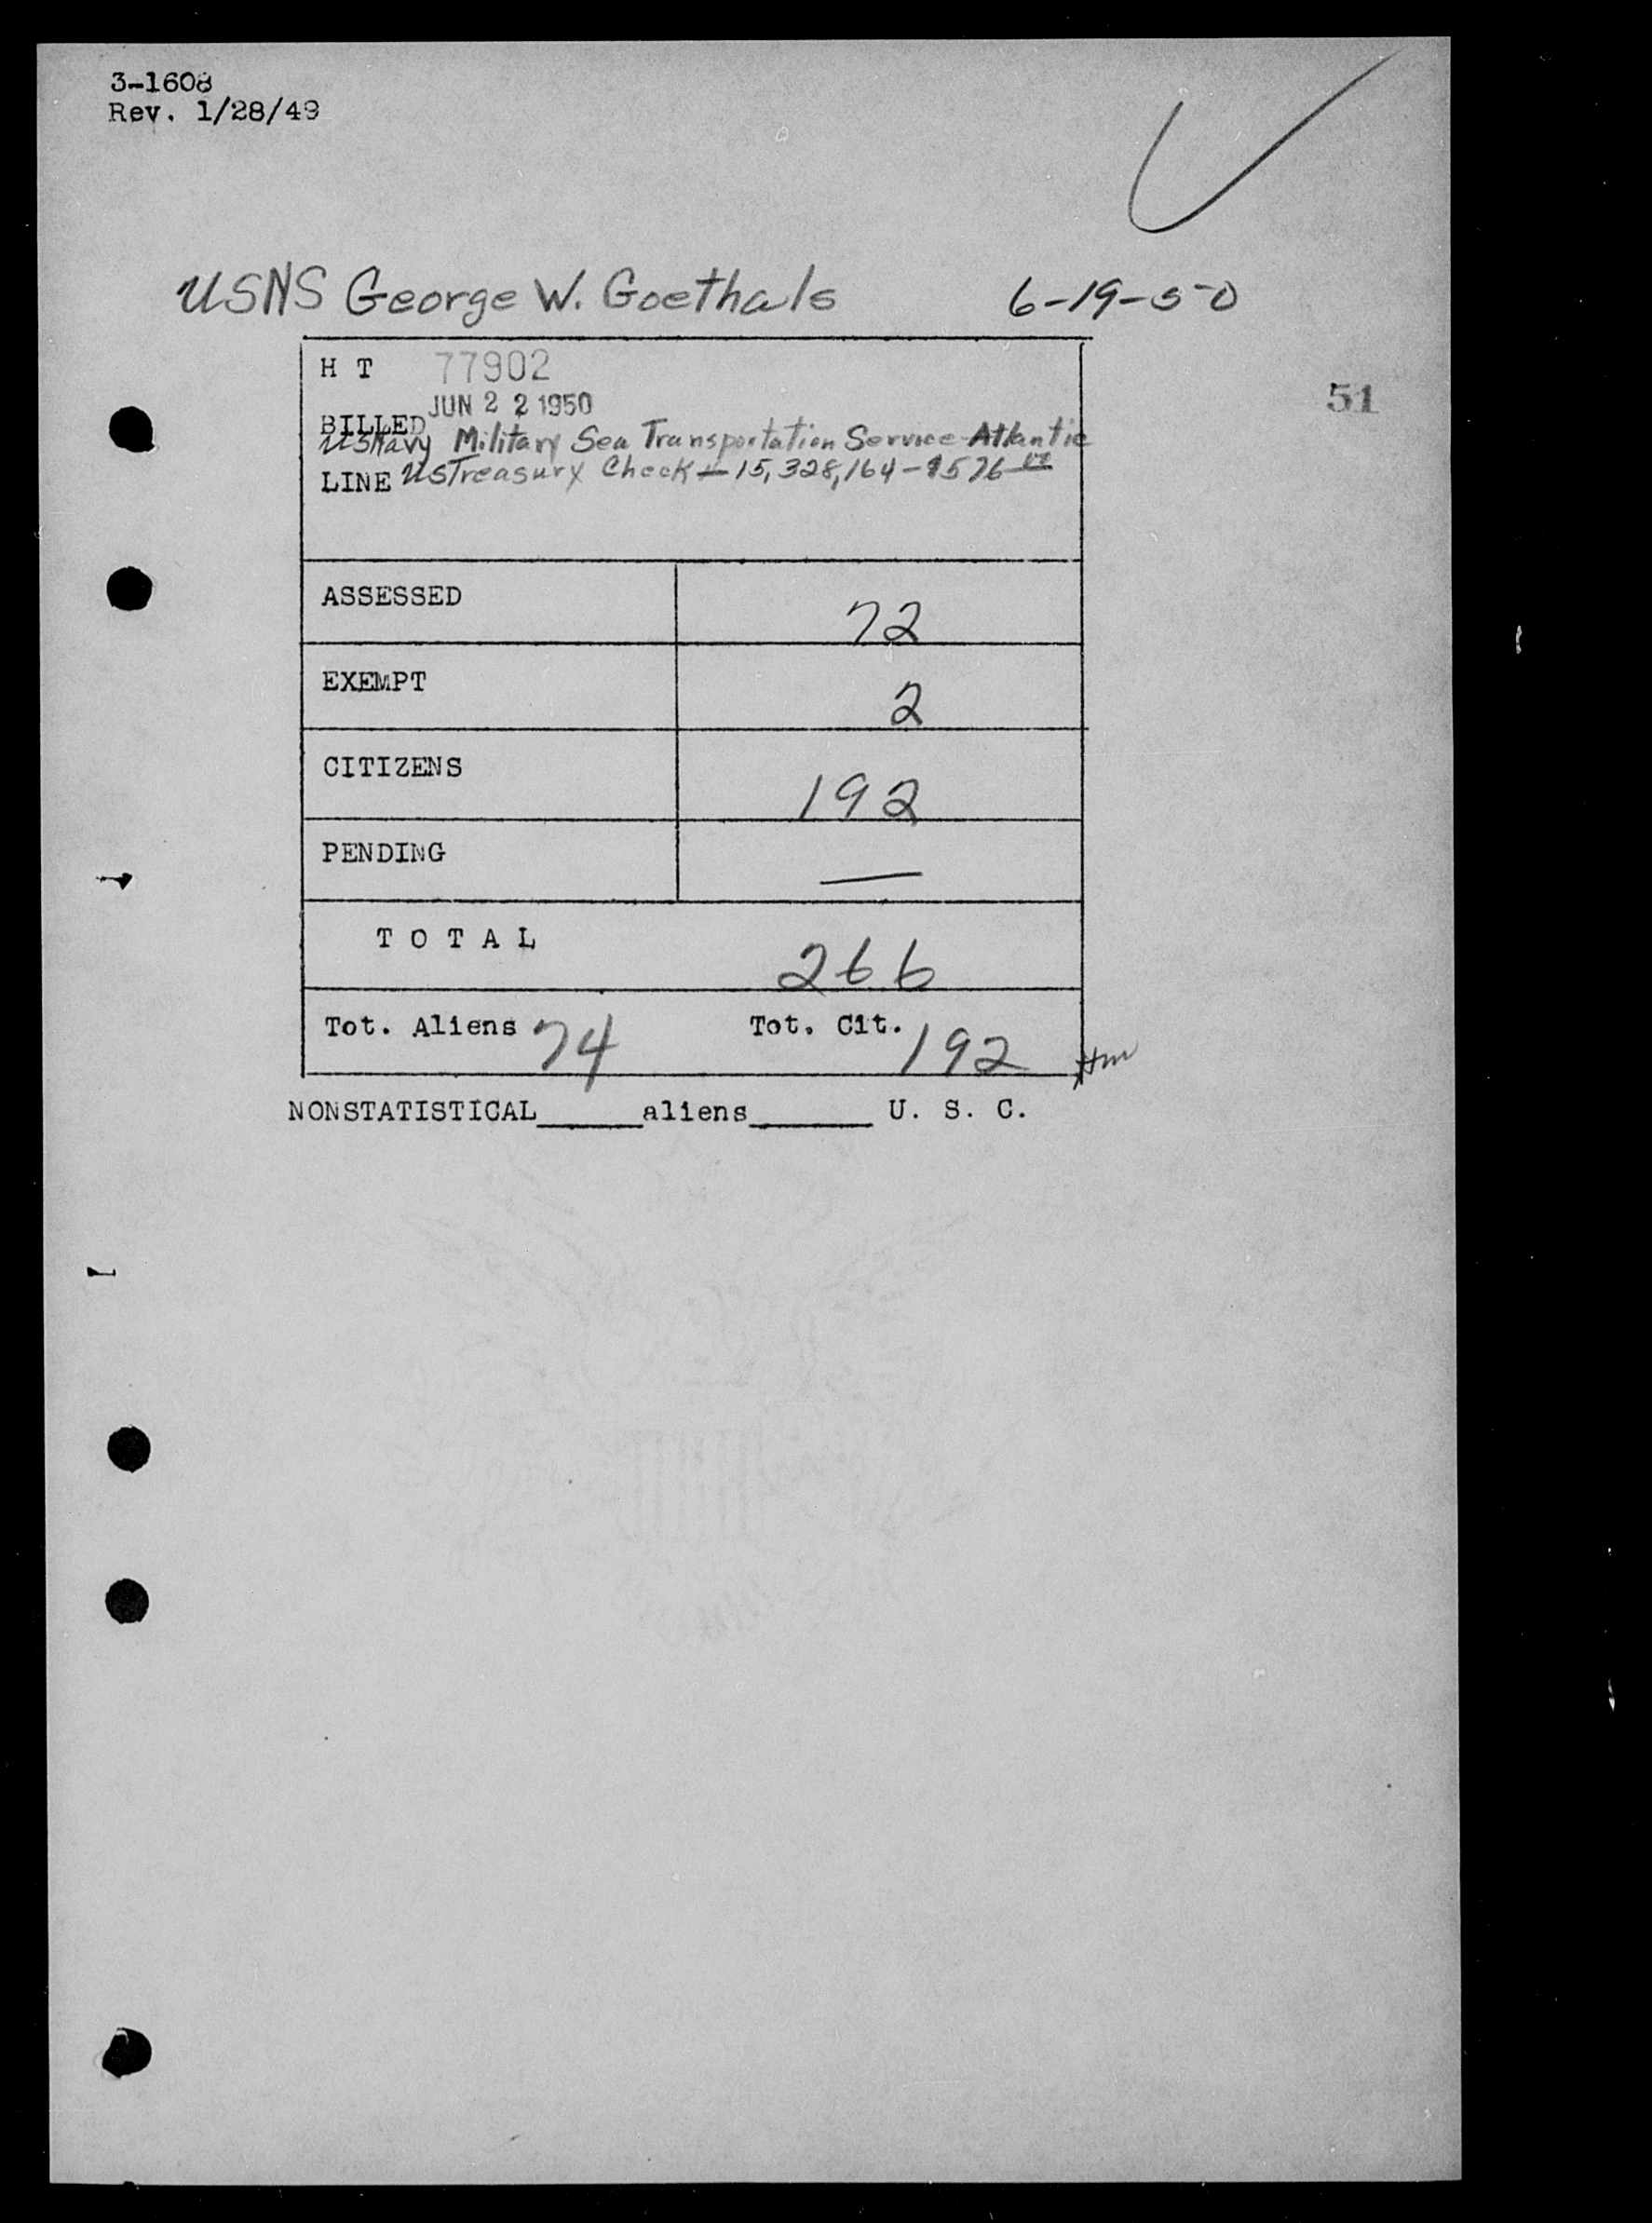 3-1608
Rev. 1/28/49
USNS George W. Goethals 6-19-50
H T 77902
51
BILLED JUN 22 1950
US Navy Military Sea Transportation Service-Atlantic
LINE US Treasury Check # 15,328,164 - $576 00
ASSESSED 72
EXEMPT 2
CITIZENS 192
PENDING —
TOTAL 266
Tot. Aliens 74 Tot. Cit. 192
NONSTATISTICAL_____aliens______ U. S. C.